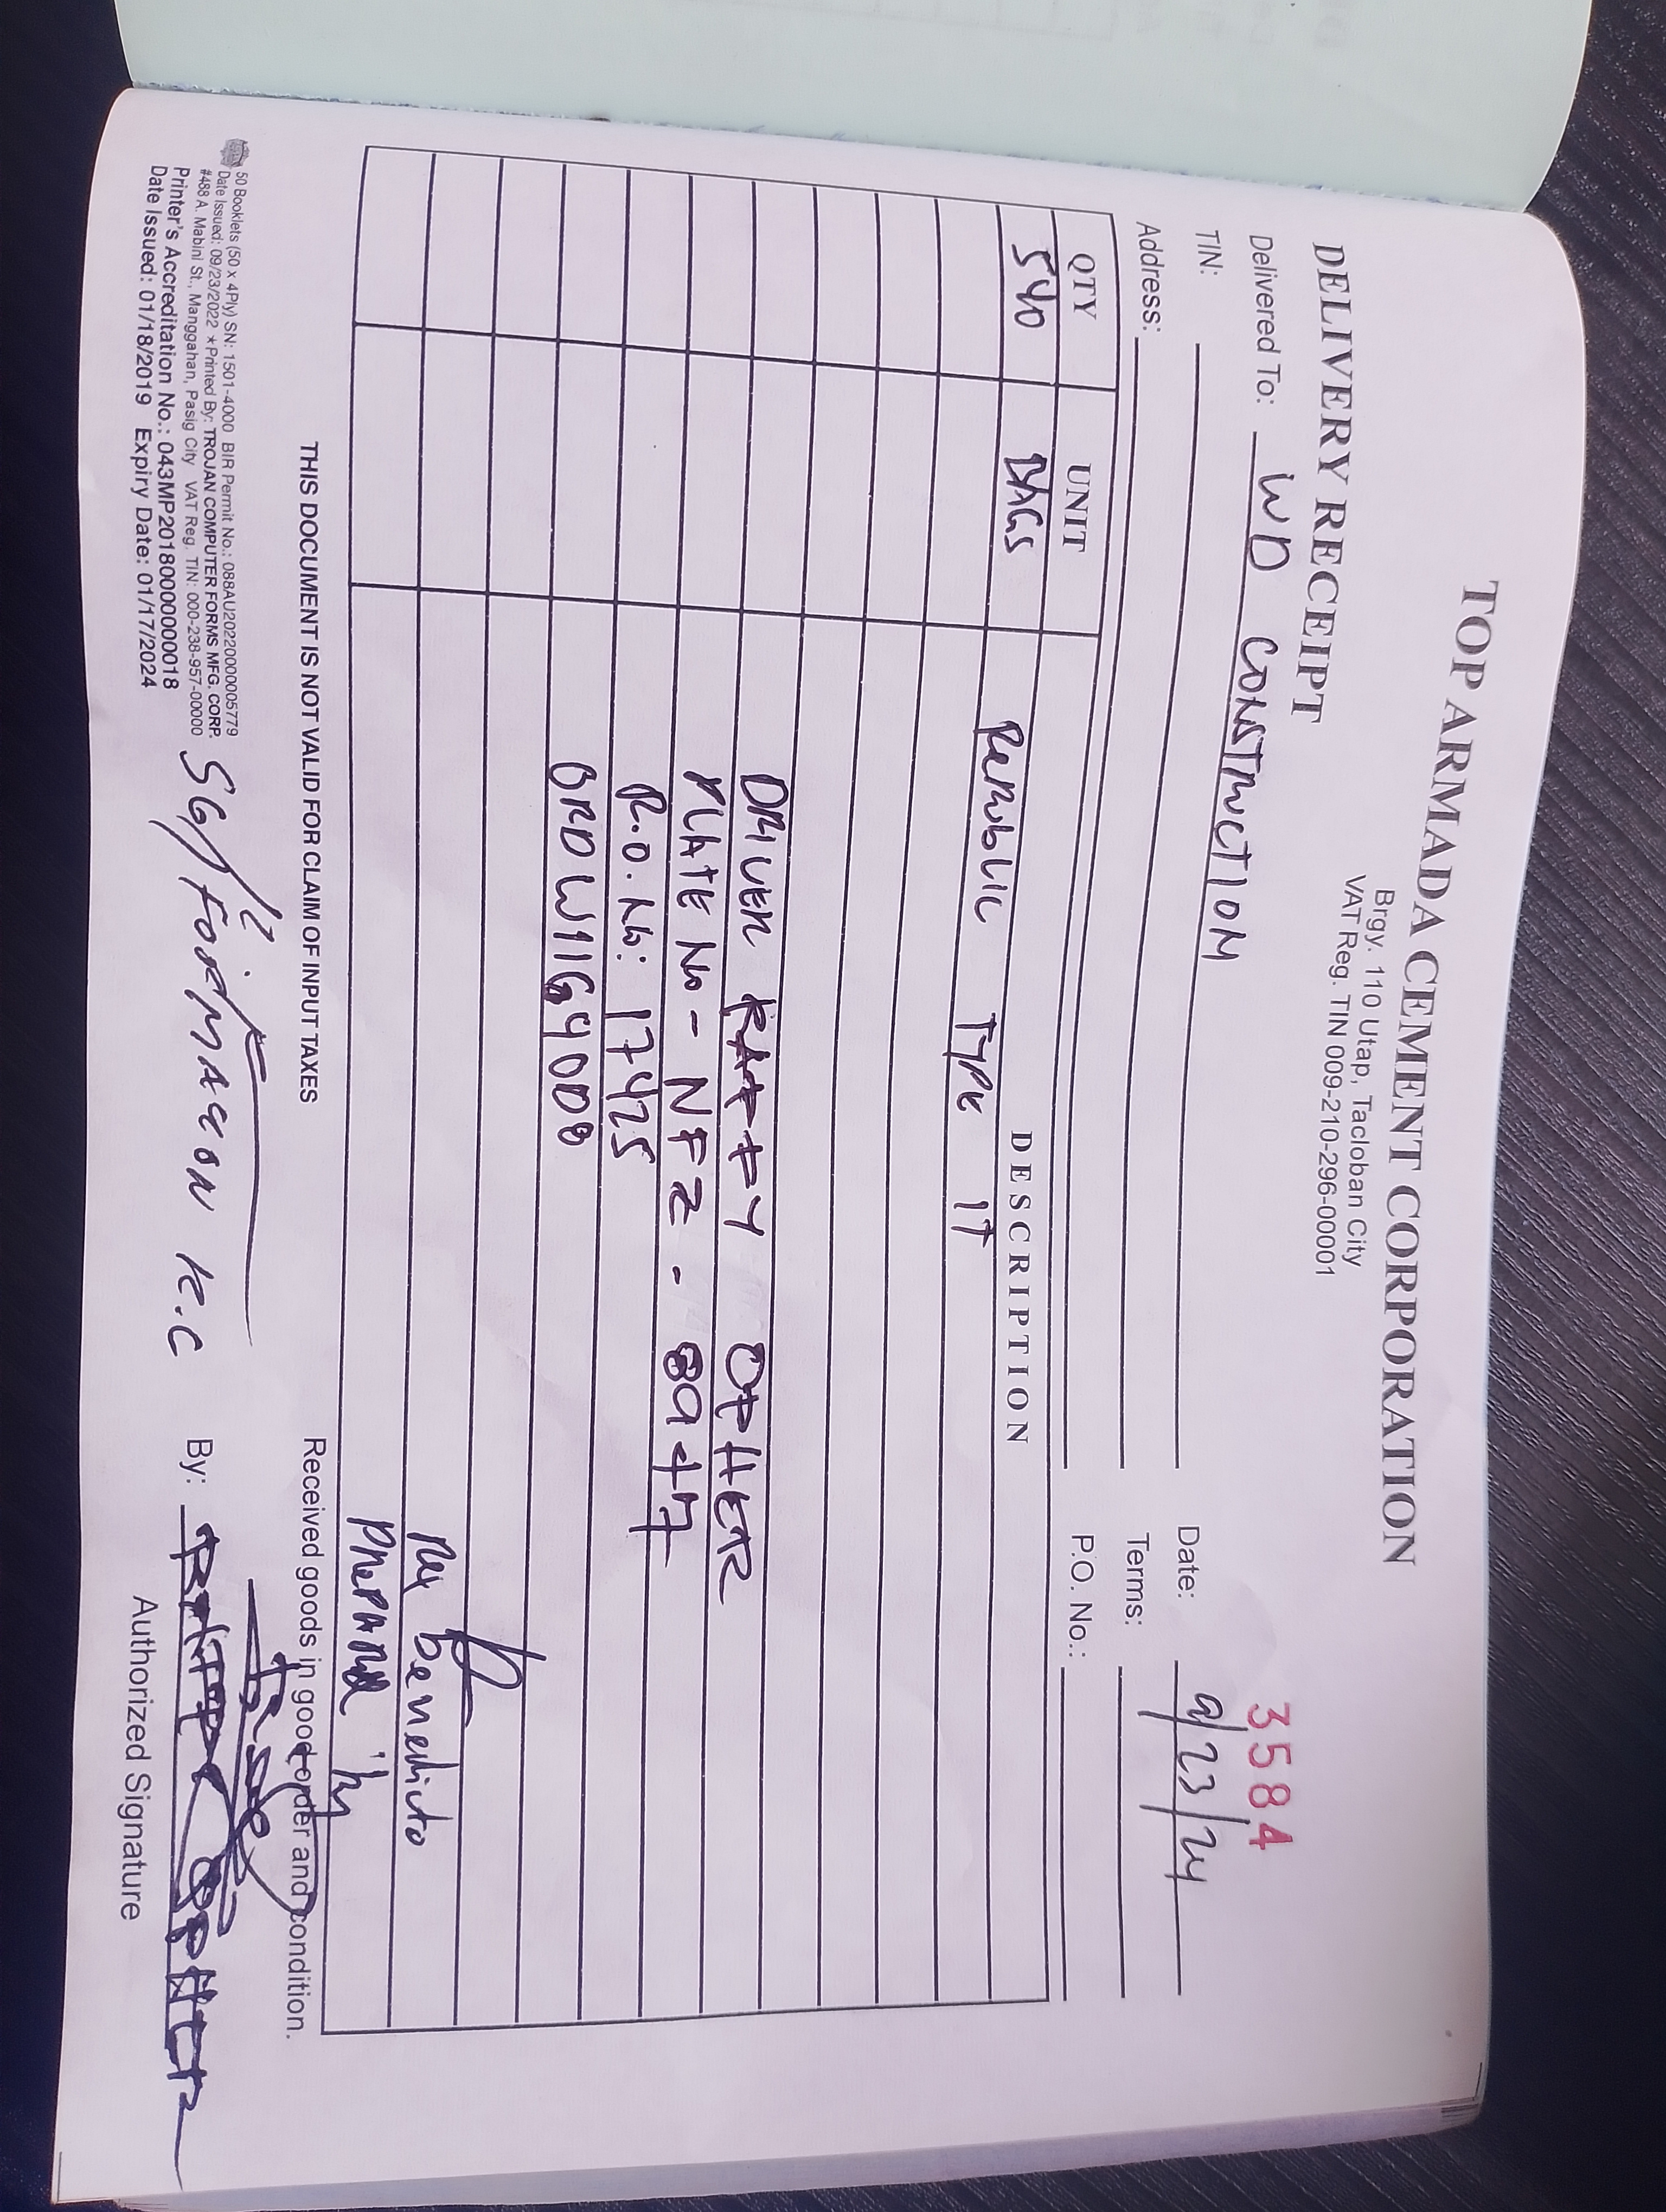 TOP ARMADA CEMENT CORPORATION
Brgy. 110 Utap, Tacloban City
VAT Reg. TIN 009-210-296-00001
DELIVERY RECEIPT
3584
Delivered To: WD CONSTRUCTION Date: 9/23/24
TIN: Terms:
Address: P.O. No.:
QTY UNIT DESCRIPTION
540 BAGS Republic TYPE 1T
DRIVER RAFFY OPHER
PLATE No - NFZ - 8947
R.O. No: 17425
Rex Benedicto
PREPARED by
THIS DOCUMENT IS NOT VALID FOR CLAIM OF INPUT TAXES
Received goods in good order and condition.
50 Booklets (50 x 4Ply) SN: 1501-4000 BIR Permit No.: 088AU20220000005779
Date Issued: 09/23/2022 ★Printed By: TROJAN COMPUTER FORMS MFG. CORP.
#488 A. Mabini St., Manggahan, Pasig City VAT Reg. TIN: 000-238-957-00000
Printer's Accreditation No.: 043MP20180000000018
Date Issued: 01/18/2019 Expiry Date: 01/17/2024
SG/ K.C
By:
Authorized Signature